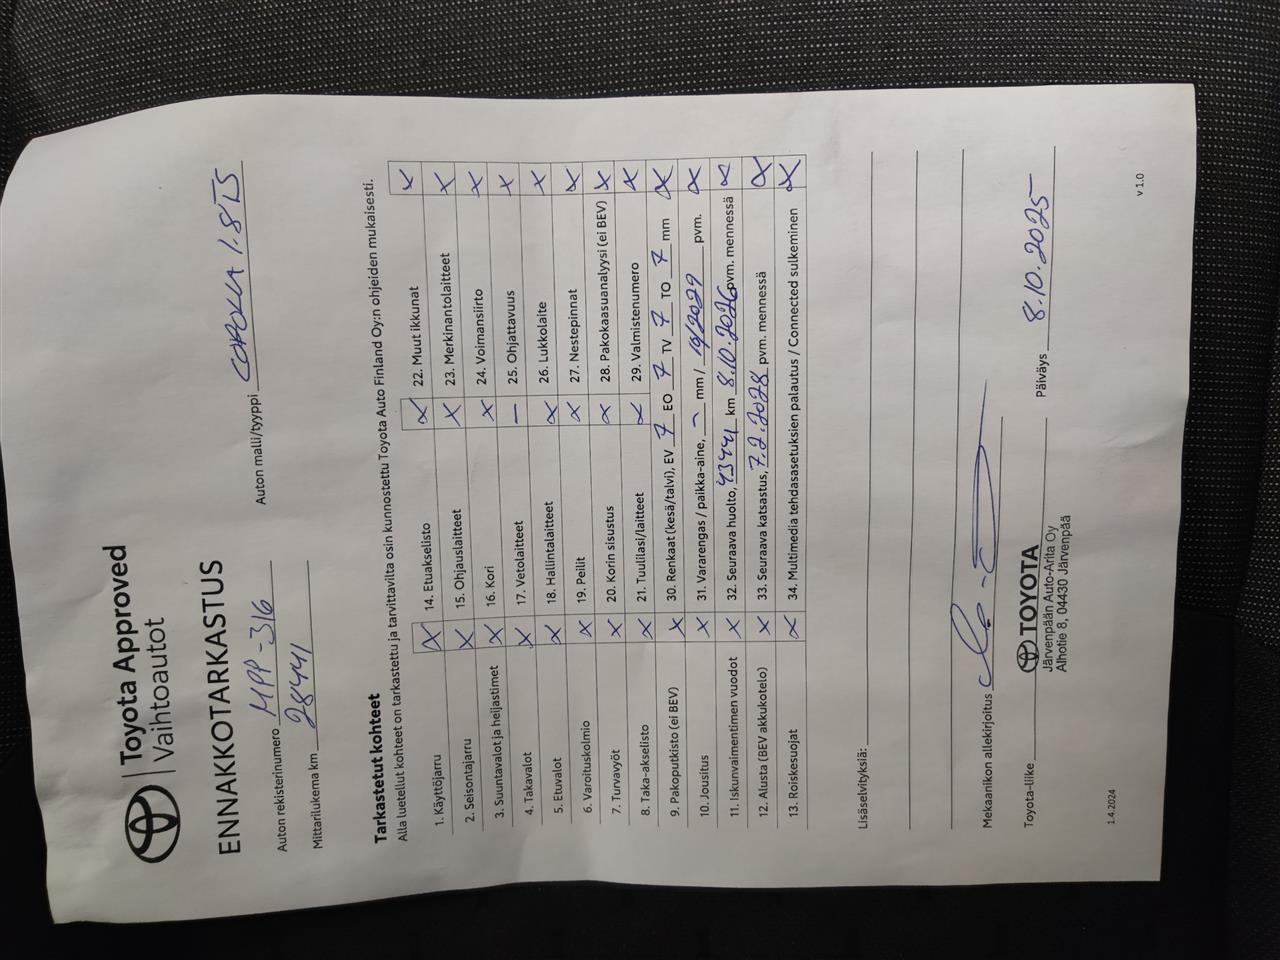 Toyota Approved
Vaihtoautot
ENNAKKOTARKASTUS
Auton rekisterinumero MPP-316 Auton malli/tyyppi COROLLA 1.8 TS
Mittarilukema km 28441
Tarkastetut kohteet
Alla luetellut kohteet on tarkastettu ja tarvittavilta osin kunnostettu Toyota Auto Finland Oy:n ohjeiden mukaisesti.
1. Käyttöjarru X 14. Etuakselisto X 22. Muut ikkunat X
2. Seisontajarru X 15. Ohjauslaitteet X 23. Merkinantolaitteet X
3. Suuntavalot ja heijastimet X 16. Kori X 24. Voimansiirto X
4. Takavalot X 17. Vetolaitteet — 25. Ohjattavuus X
5. Etuvalot X 18. Hallintalaitteet X 26. Lukkolaite X
6. Varoituskolmio X 19. Peilit X 27. Nestepinnat X
7. Turvavyöt X 20. Korin sisustus X 28. Pakokaasuanalyysi (ei BEV) X
8. Taka-akselisto X 21. Tuulilasi/laitteet X 29. Valmistenumero X
9. Pakoputkisto (ei BEV) X 30. Renkaat (kesä/talvi), EV 7 EO 7 TV 7 TO 7 mm X
10. Jousitus X 31. Vararengas / paikka-aine, – mm / 10/2029 pvm. X
11. Iskunvaimentimen vuodot X 32. Seuraava huolto, 43441 km 8.10.2026 pvm. mennessä X
12. Alusta (BEV akkukotelo) X 33. Seuraava katsastus, 7.2.2028 pvm. mennessä X
13. Roiskesuojat X 34. Multimedia tehdasasetuksien palautus / Connected sulkeminen X
Lisäselvityksiä:
Mekaanikon allekirjoitus
Toyota-liike TOYOTA Päiväys 8.10.2025
Järvenpään Auto-Arita Oy
Alhotie 8, 04430 Järvenpää
1.4.2024 v 1.0